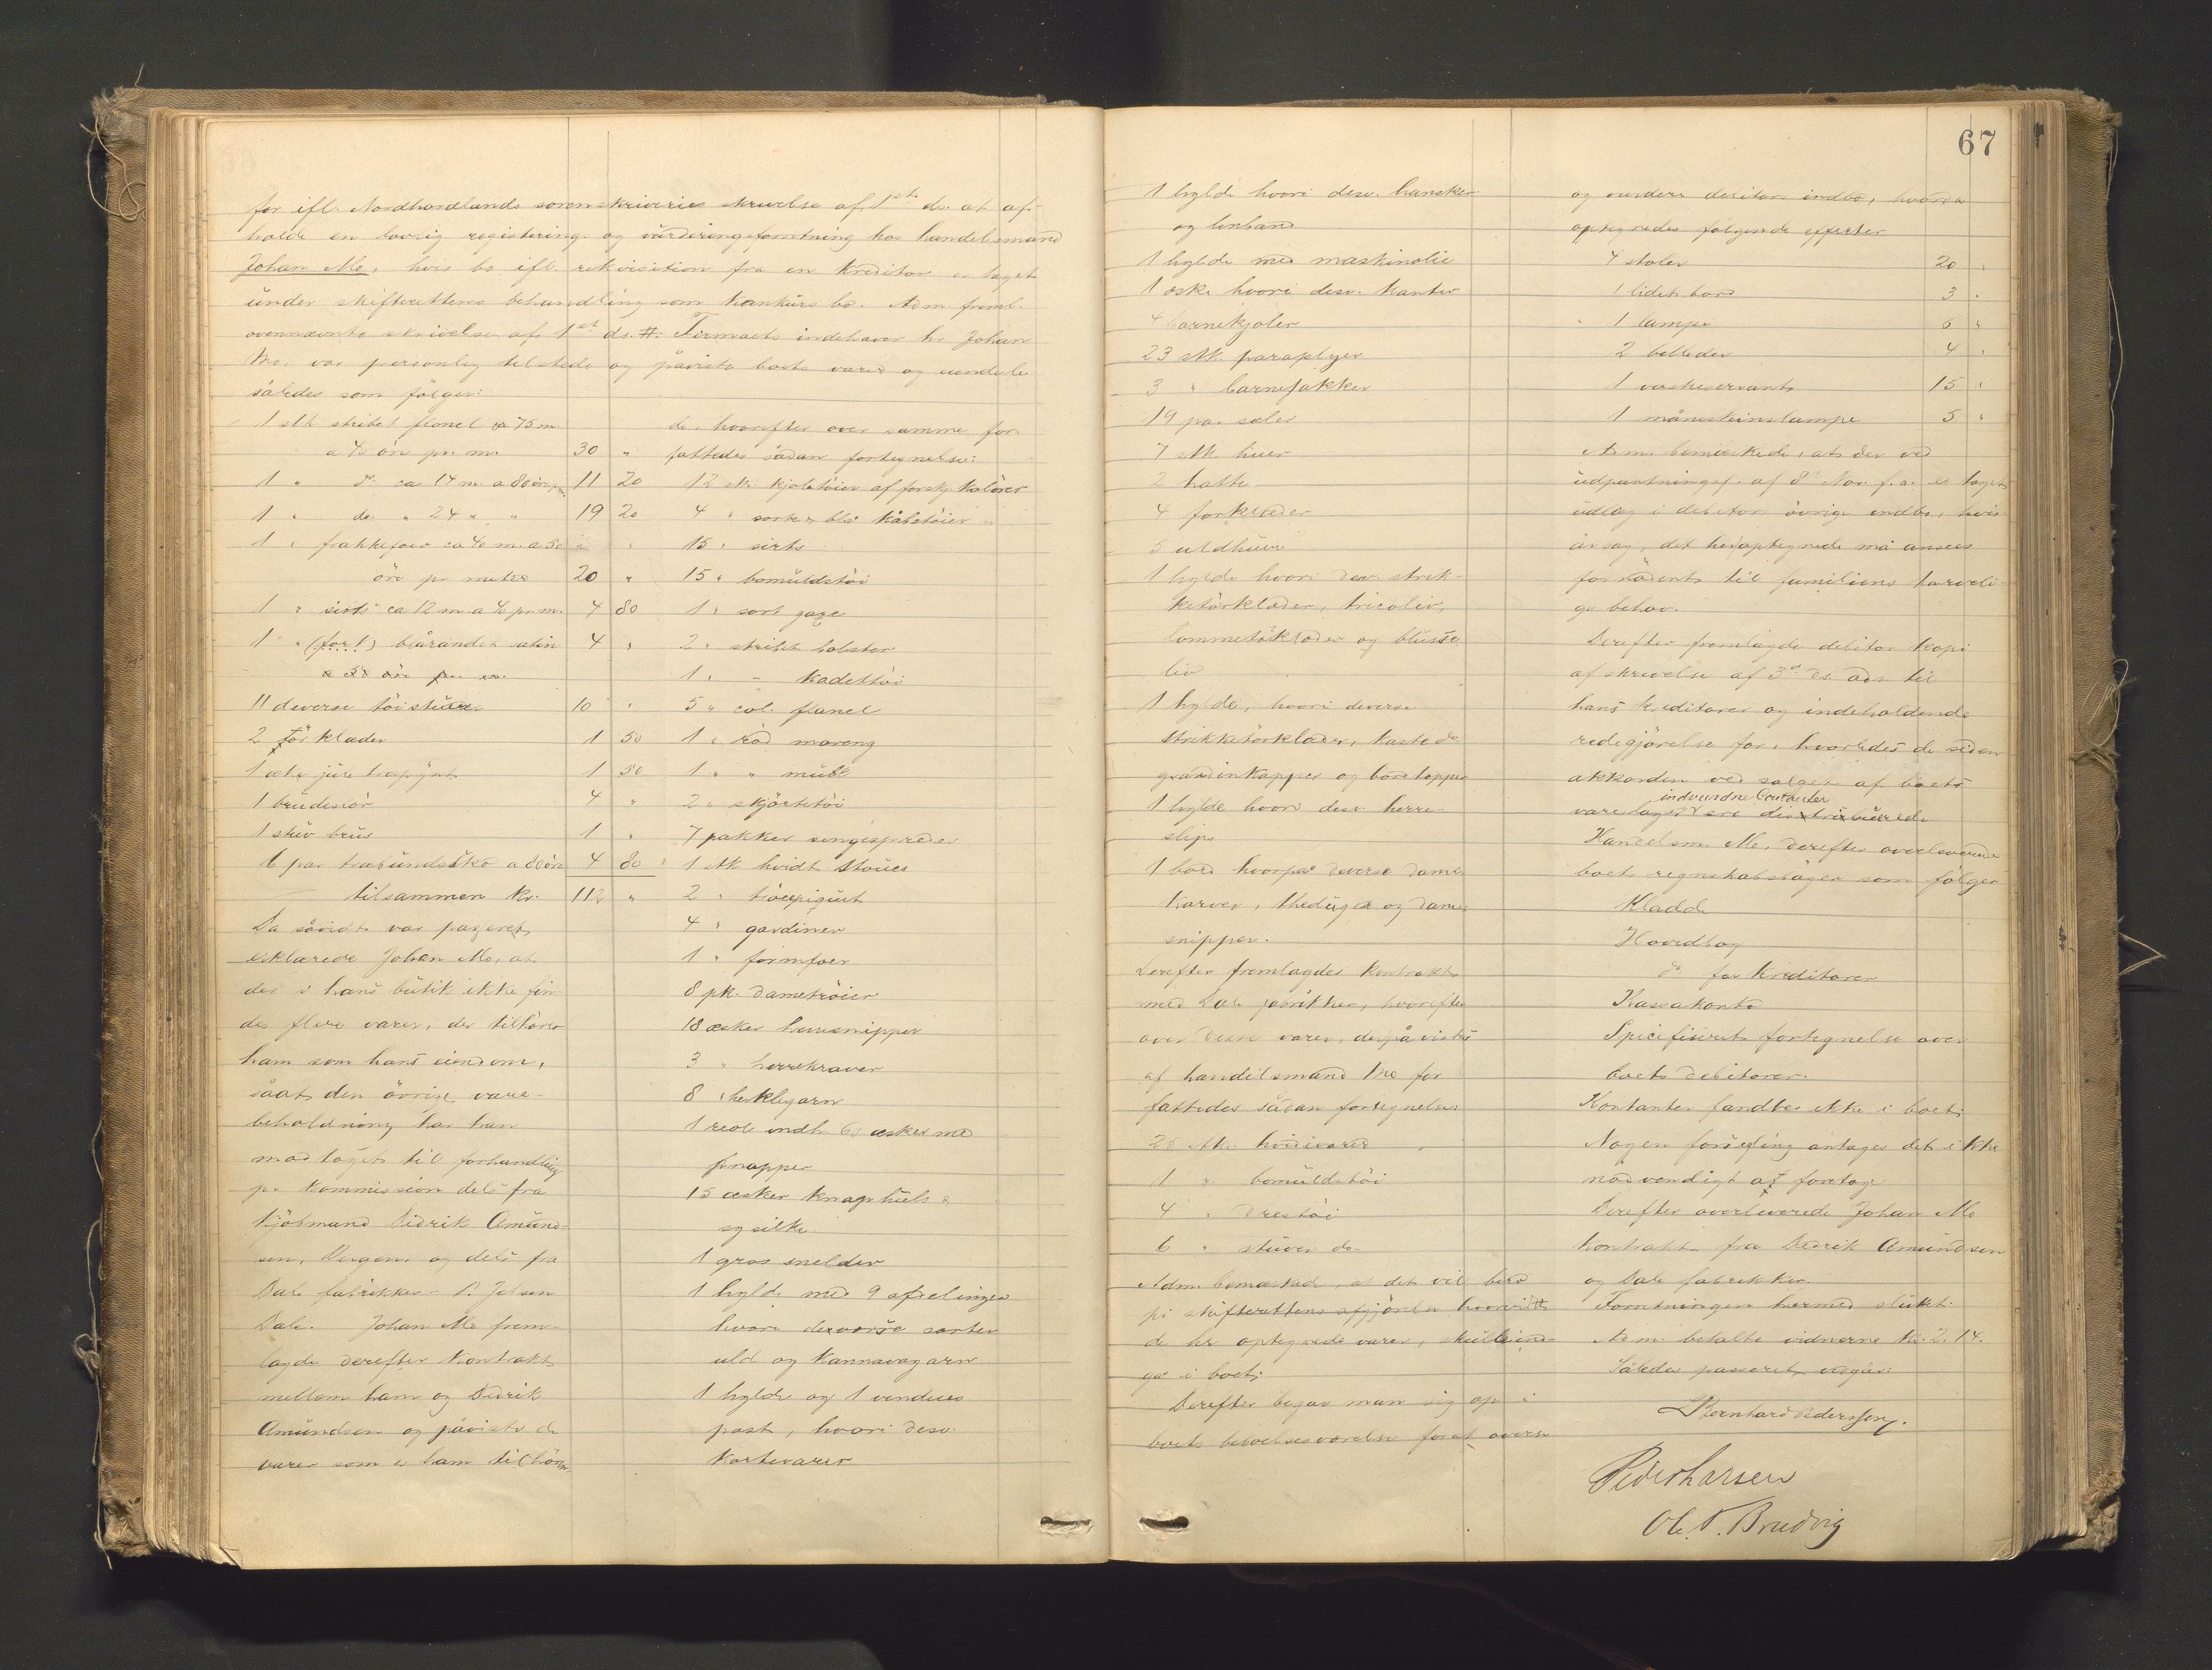 for ifl. Nordhordlands sorenskriveries skrivelse af 1st ds. at af-
holde en lovlig registering og vårderingsforretning hos handelsmand
Johan Mo, hvis bo ifl. rekvisition fra en kreditor er taget
under skifterettens behandling som konkurs bo. Adm. freml.
ovennævnte skrivelse af 1st ds. #: Firmaets indehaver hr Johan
Mo. var personlig tilstede og påviste boets varer og
således som følger:
1 stk stribet flonel ca 75 m.
a 40 øre pr. m. 30 "
1 " do. ca 14 m. a 80 øre pm 11 20
1 " do. " 24 " " 19 20
1 " frakkefoer ca 40 m. a 50
øre pr metre 20 "
1 " sirts ca 12 m. a 40 pr. m. 4 80
1 " (fort) blårandet satin 4 "
a 50 øre pr. m.
11 deverse töistuver 10 "
2 törklæder 1 50
1 æske juletrepynt 1 50
1 brudeslör 4 "
1 stuv brus 1 "
6 par træbundsko a 80 öre 4 80
tilsammen kr. 112 "
Da såvidt var passeret,
erklærede Johan Mo, at
der i hans butik ikke fin-
des flere varer, der tilhörer
ham som hans eiendom,
såat den övrige vare-
beholdning har han
modtaget til forhandling
pr. kommission dels fra
kjöbmand Didrik Amund-
sen, Bergen, og dels fra
Dale fabrikker P. Jebsen
Dale. Johan Mo frem-
lagde derefter kontrakt
mellem ham og Didrik
Amundsen og påviste de
varer som er ham tilhören-
de, hvorefter over samme for-
fattedes sådan fortegnelse:
12 stk. kjoletöier af forskj. kolörer
4 " sorte & blå kåbetöier
15 " sirts
15 " bomuldstöi
1 " sort gaze
2 " stribet bolster
1 " - kadettöi
5 " col. flanel
1 " röd moreng
1 " "
2 " skjörtetöi
7 pakker sengespreder
1 stk hvidt stoues
2 "
4 " gardiner
1 " formfoer
8 pk. dametröier
18 æsker herresnipper
3 " herrekraver
8 " heklegarn
1 reol indh. 60 æsker med
knapper
15 æsker knaphuls &
sysilke
1 gros snelder
1 hylde med 9 afdelinger
hvori deverse sorter
uld og kannavagarn
1 hylde og 1 vindues
post, hvori desv.
kortevarer
67
1 hylde hvori desv. hansker
og linband
1 hylde med maskinolie
1 æske hvori desv. kanter
4 barnekjoler
23 stk. paraplyer
3 " barnejakker
19 par saler
7 stk. huer
2 hatte
4 forklæder
5 uldhuver
1 hylde hvori desv. strik-
ketörklæder, tricoliv,
lommetörklæder og bluse-
liv
1 hylde, hvori deverse
strikketörklæder, kaste do.
gardinkapper og
1 hylde hvori desv. herre-
slips
1 bord hvorpå deverse dame
kurver, theduge og dame-
snipper.
Derefter fremlagdes kontrakt
med Dale fabrikker, hvorefter
over disse varer, der påvistes
af handelsmand Mo for
fattedes sådan fortegnelse
28 stk. hvidevarer
1 " bomuldstöi
4 " drestöi
6 " stuver do.
Adm. bemærkede, at det vil bero
på skifterettens afgjörelse hvorvidt
de her optegnede varer, skulle ind-
gå i boet.
Derefter begav man sig op i
boets beboelsesværelse forat overse
og vurdere debitors indbo, hvorpå
optegnedes følgende effekter
4 stoler 20 "
1 lidet bord 3 "
1 lampe 6 "
2 belleder 4 "
1 vaskeservant 15 "
1 måneskinslampe 5 "
Adm. bemærkede, at der ved
udpantningsf. af 8de Nov. f.a. er taget
udlæg i debitors övrige indbo, hvis
årsag, det heroptegnede må ansees
fornödent til familiens tarveli-
ge behov.
Derefter fremlagde debitor kopi
af skrivelse af 3d ds. adr. til
hans kreditorer og indeholdende
redegjörelse for, hvorledes de siden
akkorden ved salget af boets
indvundne Contanter
varelager ere distribuerede
Handelsm. Mo, derefter overleverede
boets regnskabsböger som fölger
Kladde
Hovedbog
do. for kreditorer
Kassakonto
Spicificeret fortegnelse over
boets debitorer.
Kontanter fandtes ikke i boet.
Nogen forsegling antages det ikke
nödvendigt at foretage
Derefter overleverede Johan Mo
kontrakt fra Didrik Amundsen
og Dale fabrikker.
Forretningen hermed sluttet.
Adm. betalte vidnerne kr. 2.14.
Således passeret, vedgår:
Bernhard Pedersen.
Peder Larsen
Ole. T. Brudvig